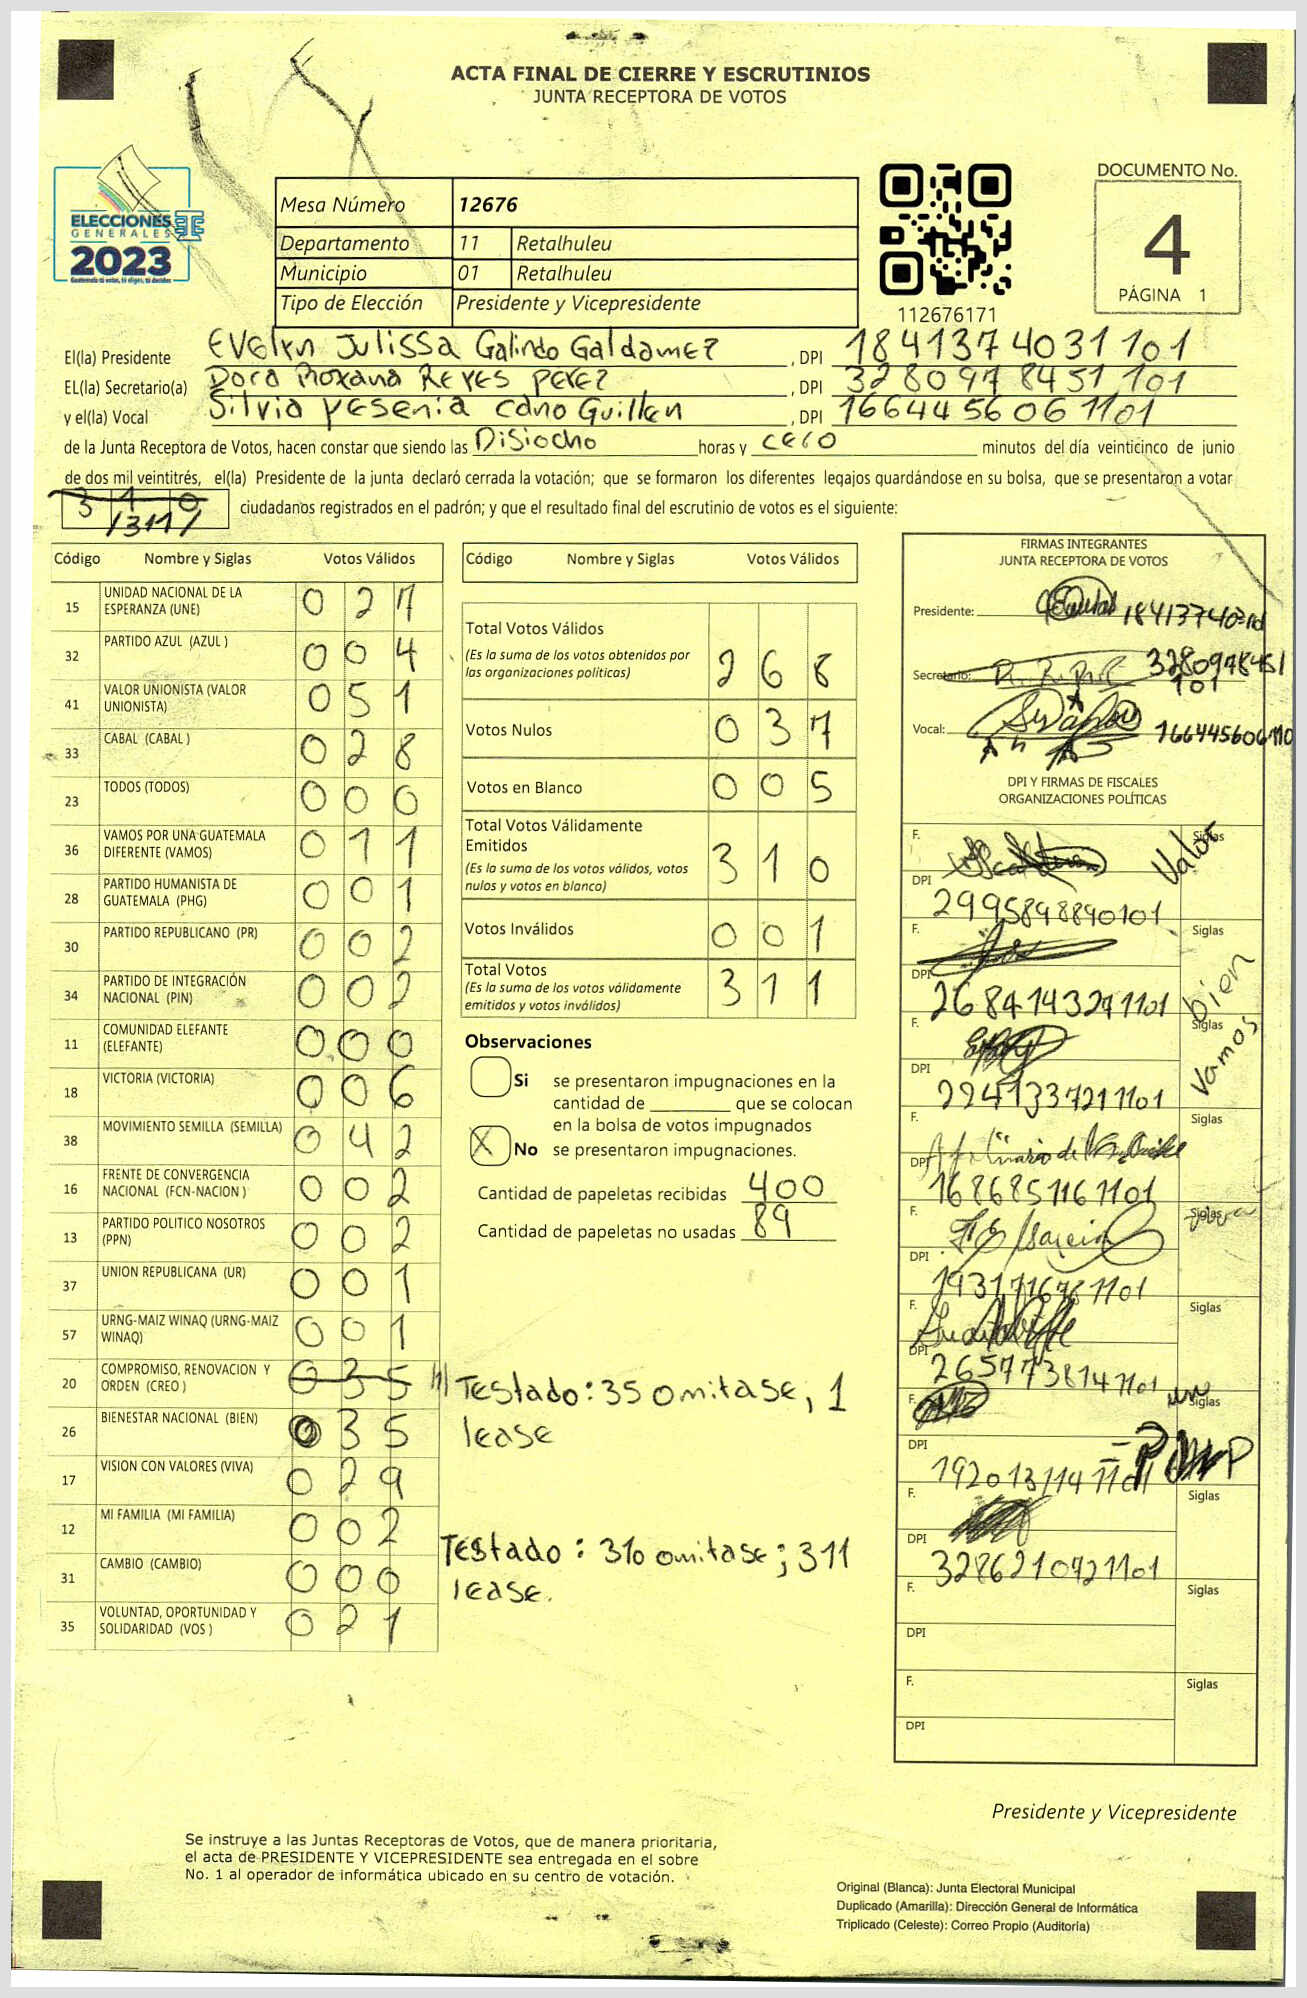 ACTA FINAL DE CIERRE Y ESCRUTINIOS
JUNTA RECEPTORA DE VOTOS
ELECCIONES
GENERALES
2023
Mesa Número 12676
Departamento 11 Retalhuleu
Municipio 01 Retalhuleu
Tipo de Elección Presidente y Vicepresidente
112676171
DOCUMENTO No.
4
PÁGINA 1
El(la) Presidente Evelyn Julissa Galindo Galdamez, DPI 1841374031101
EL(la) Secretario(a) Dora Roxana Reyes Perez, DPI 3280978451101
y el(la) Vocal Silvia Yesenia Cano Guillen, DPI 1664456061101
de la Junta Receptora de Votos, hacen constar que siendo las Disiocho horas y cero minutos del día veinticinco de junio
de dos mil veintitrés, el(la) Presidente de la junta declaró cerrada la votación; que se formaron los diferentes legajos guardándose en su bolsa, que se presentaron a votar
310 /311/ ciudadanos registrados en el padrón; y que el resultado final del escrutinio de votos es el siguiente:
Código Nombre y Siglas Votos Válidos
15 UNIDAD NACIONAL DE LA ESPERANZA (UNE) 027
32 PARTIDO AZUL (AZUL ) 004
41 VALOR UNIONISTA (VALOR UNIONISTA) 051
33 CABAL (CABAL ) 028
23 TODOS (TODOS) 000
36 VAMOS POR UNA GUATEMALA DIFERENTE (VAMOS) 011
28 PARTIDO HUMANISTA DE GUATEMALA (PHG) 001
30 PARTIDO REPUBLICANO (PR) 002
34 PARTIDO DE INTEGRACIÓN NACIONAL (PIN) 002
11 COMUNIDAD ELEFANTE (ELEFANTE) 000
18 VICTORIA (VICTORIA) 006
38 MOVIMIENTO SEMILLA (SEMILLA) 042
16 FRENTE DE CONVERGENCIA NACIONAL (FCN-NACION ) 002
13 PARTIDO POLITICO NOSOTROS (PPN) 002
37 UNION REPUBLICANA (UR) 001
57 URNG-MAIZ WINAQ (URNG-MAIZ WINAQ) 001
20 COMPROMISO, RENOVACION Y ORDEN (CREO ) 035 /1/
26 BIENESTAR NACIONAL (BIEN) 035
17 VISION CON VALORES (VIVA) 029
12 MI FAMILIA (MI FAMILIA) 002
31 CAMBIO (CAMBIO) 000
35 VOLUNTAD, OPORTUNIDAD Y SOLIDARIDAD (VOS ) 021
Código Nombre y Siglas Votos Válidos
Total Votos Válidos 268
(Es la suma de los votos obtenidos por
las organizaciones políticas)
Votos Nulos 037
Votos en Blanco 005
Total Votos Válidamente
Emitidos 310
(Es la suma de los votos válidos, votos
nulos y votos en blanco)
Votos Inválidos 001
Total Votos 311
(Es la suma de los votos válidamente
emitidos y votos inválidos)
Observaciones
Si se presentaron impugnaciones en la
cantidad de ________ que se colocan
en la bolsa de votos impugnados
X No se presentaron impugnaciones.
Cantidad de papeletas recibidas 400
Cantidad de papeletas no usadas 89
Testado: 35 omitase, 1
lease
Testado: 310 omitase; 311
lease.
FIRMAS INTEGRANTES
JUNTA RECEPTORA DE VOTOS
Presidente:
Secretario: 3280978451
101
Vocal:
DPI Y FIRMAS DE FISCALES
ORGANIZACIONES POLÍTICAS
F. Siglas Valor
DPI 2995898890101
F. Siglas bien
DPI 2684143271101
F. Siglas Vamos
DPI 2241337211101
F. Siglas
DPI 1686851161101
F. Siglas
DPI
F. Siglas
DPI 2657738141101
F. Siglas
DPI 1920131141101
F. Siglas
DPI 3286210721101
F. Siglas
DPI
F. Siglas
DPI
Presidente y Vicepresidente
Se instruye a las Juntas Receptoras de Votos, que de manera prioritaria,
el acta de PRESIDENTE Y VICEPRESIDENTE sea entregada en el sobre
No. 1 al operador de informática ubicado en su centro de votación.
Original (Blanca): Junta Electoral Municipal
Duplicado (Amarilla): Dirección General de Informática
Triplicado (Celeste): Correo Propio (Auditoría)